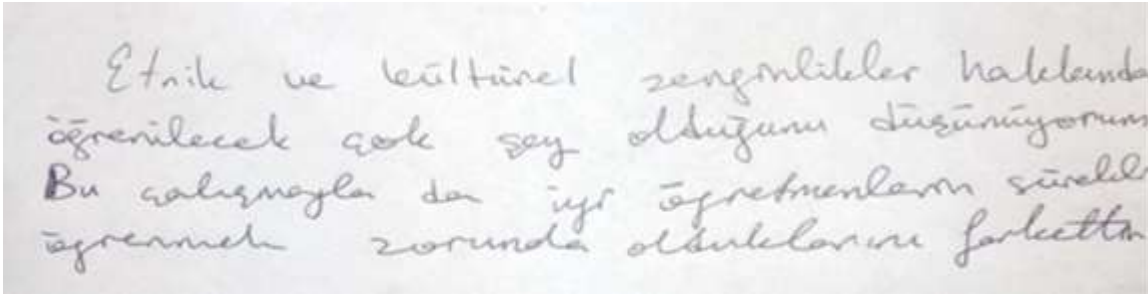 Etnik ve kültürel zenginlikler hakkında
öğrenilecek çok şey olduğunu düşünüyorum
Bu çalışmayla da iyi öğretmenlerin sürekli
öğrenmek zorunda olduklarını farkettim